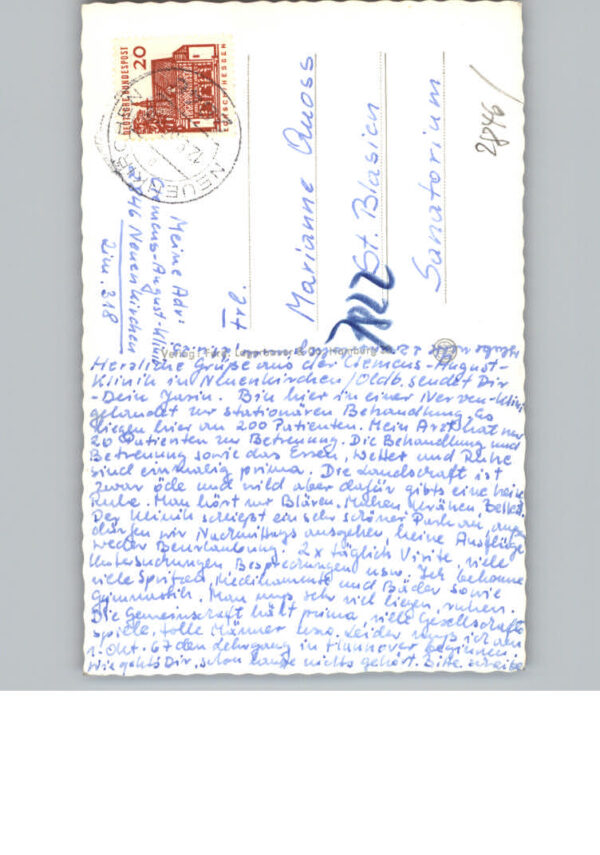 DEUTSCHE BUNDESPOST
20
LORSCH/HESSEN
NEUENKIRCHEN
2846/
Frl.
Marianne Quoss
7822 St. Blasien
Sanatorium
Meine Adr.
Clemens-August-Klinik
2846 Neuenkirchen
Zim. 318
Verlag Ferd. Lagerbauer & Co., Hamburg
Herzliche Grüße aus der Clemens-August-
Klinik in Neuenkirchen/Oldb. sendet Dir
- Dein Bin hier in einer Nerven-Klinik
gelandet zur stationären Behandlung. Es
liegen hier an 200 Patienten. Mein Arzt hat nur
20 Patienten zur Betreuung. Die Behandlung und
Betreuung sowie das Essen, Wetter und Ruhe
sind einmalig prima. Die Landschaft ist
zwar öde und wild aber dafür gibts eine
Ruhe. Man hört nur Blären, Mähen,
Der Klinik schließt ein sehr schöner Park an, auch
dürfen wir Nachmittags ausgehen, keine Ausflüge
weder Beurlaubung. 2x täglich Visite, viele
Untersuchungen, Besprechungen usw. Ich bekomme
viele Spritzen, Medikamente und Bäder sowie
Gymnastik. Man muß sehr viel liegen, ruhen.
Die Gemeinschaft hält prima, viele Gesellschafts-
spiele, tolle Männer usw. Leider muß ich am
1. Okt. 67 den Lehrgang in Hannover beginnen.
Wie gehts Dir, schon lange nichts gehört. Bitte schreibe